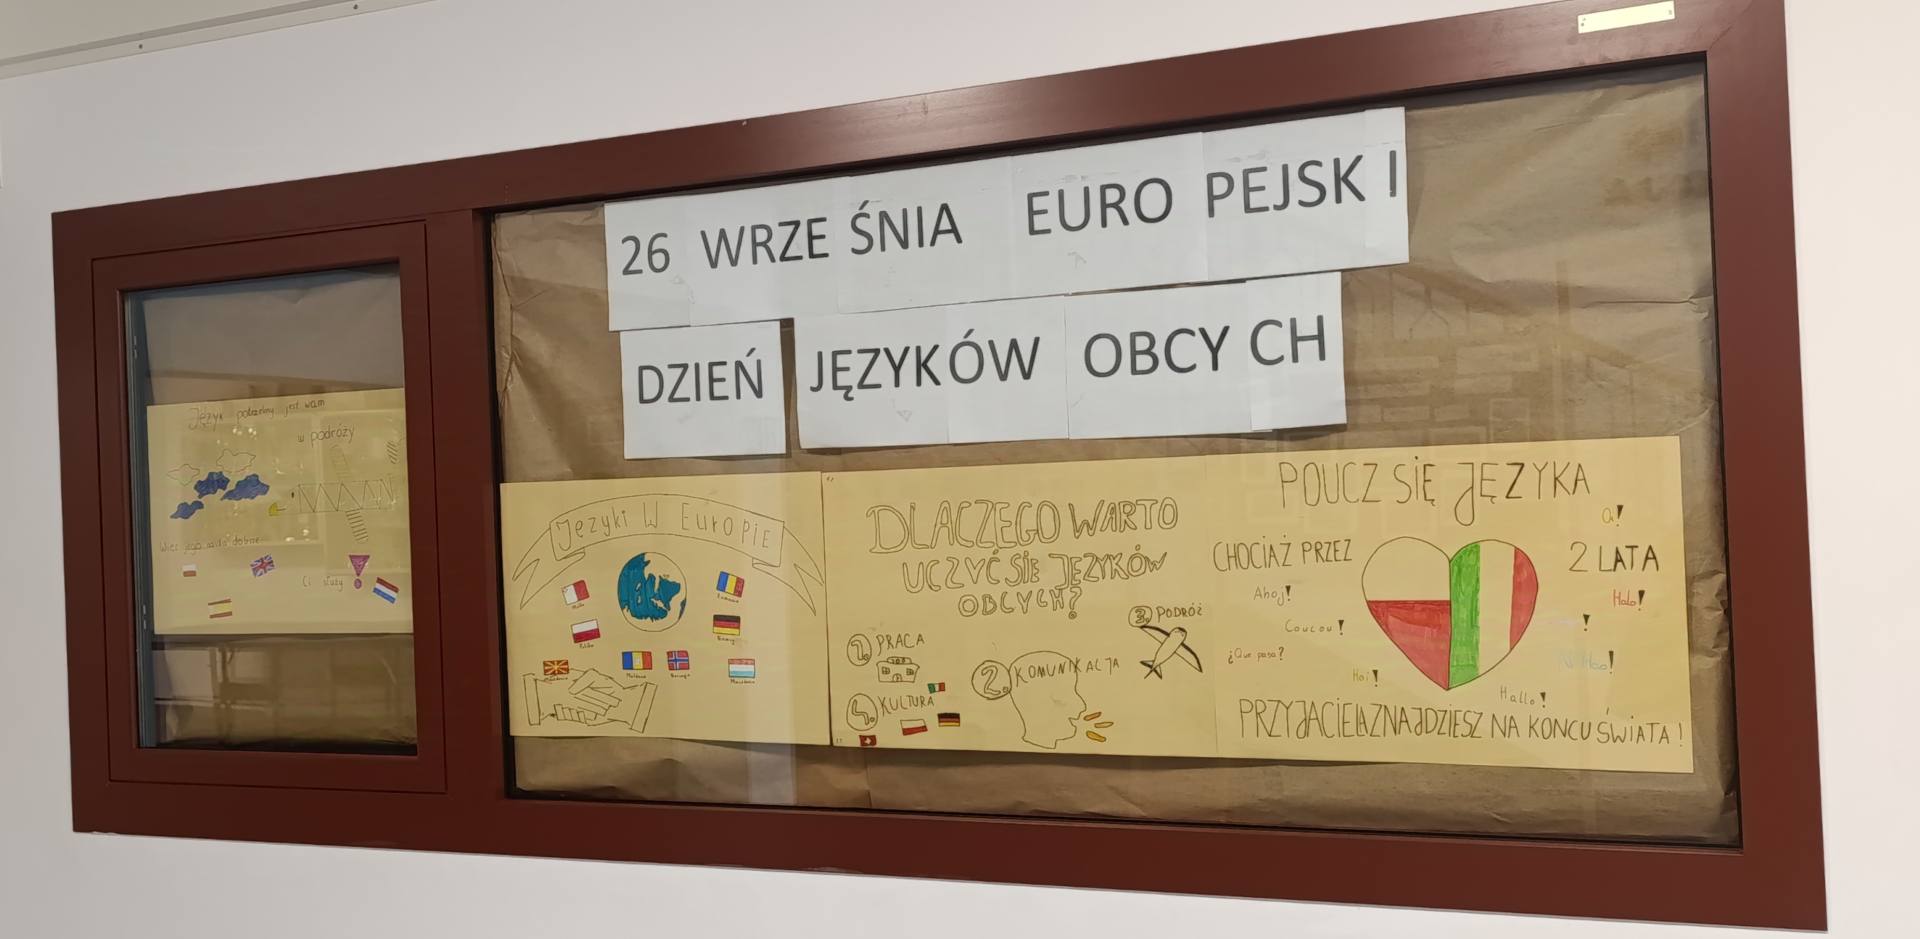 26 WRZEŚNIA EUROPEJSKI
DZIEŃ JĘZYKÓW OBCYCH
Język potrzebny jest wam
w podróży
Więc jego dobrze
Ci służy
Języki W EuroPIE
Malta
Polska
Niemcy
Mołdawia
Norwegia
DLACZEGO WARTO
UCZYĆ SIĘ JĘZYKÓW
OBCYCH?
1. PRACA
2. KOMUNIKACJA
3. PODRÓŻ
4. KULTURA
POUCZ SIĘ JĘZYKA
CHOCIAŻ PRZEZ
2 LATA
Ahoj!
Coucou!
¿Que pasa?
Hoi!
Hallo!
Halo!
PRZYJACIELA ZNAJDZIESZ NA KONCU ŚWIATA!